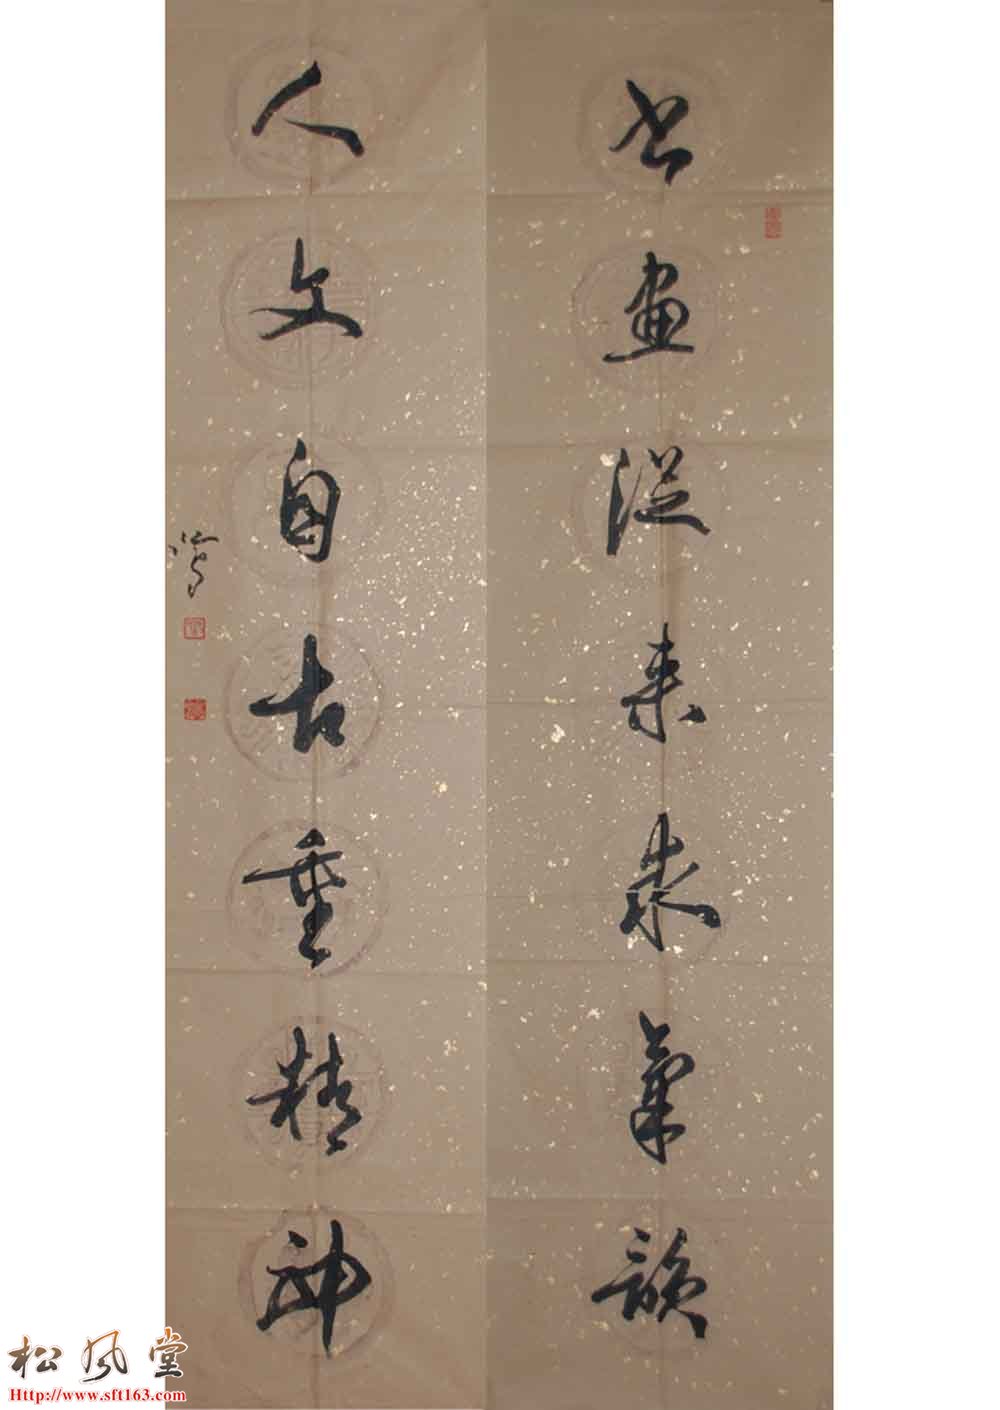 书畫從来求氣韻
人文自古重精神
松风堂
Http://www.sft163.com